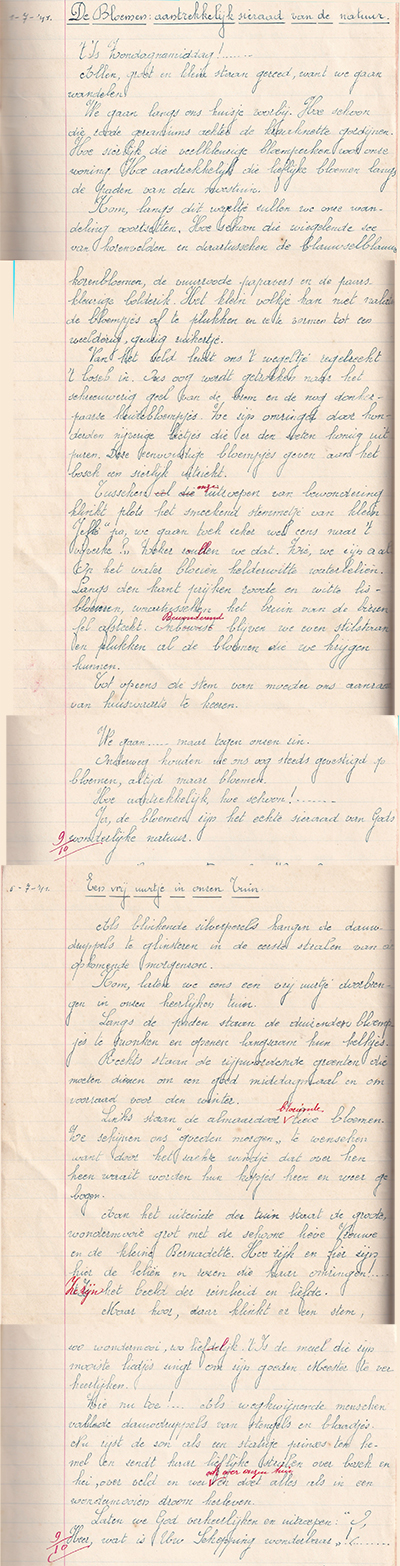 2-7-'41. De Bloemen: aantrekkelijk sieraad van de natuur.
't Is Zondagnamiddag!......
Allen, groot en klein staan gereed, want we gaan
wandelen.
We gaan langs ons huisje voorbij. Hoe schoon
die roode geraniums achter de gordijnen.
Hoe sierlijk die veelkleurige bloemperken voor onze
woning. Hoe aantrekkelijk die lieflijke bloemen langs
de paden van den
Kom, langs dit wegeltje zullen we onze wan-
deling voortzetten. Hoe schoon die wiegelende zee
van korenvelden en daartusschen de blauwselblauwe
korenbloemen, de vuurroode papavers en de paars
kleurige bolderik. Het klein volkje kan niet nalaten
de bloempjes af te plukken en ze te vormen tot een
weelderig, geurig ruikertje.
Van het veld leidt ons 't wegeltje regelrecht
't bosch in. Ons oog wordt getrokken naar het
schreeuwerig geel van de brem en de nog donker-
paarse heidebloempjes. We zijn omringd door hon-
derden nijverige bietjes die er den zoeten honig uit
puren. Deze eenvoudige bloempjes geven aan het
bosch een sierlijk uitzicht.
Tusschen al die onze uitroepen van bewondering
klinkt plots het smeekend stemmetje van klein
Jefke "pa, we gaan toch zeker wel eens naar 't
vijverke"! Zeker zullen we dat. Zie, we zijn er al.
Op het water bloeien helderwitte waterleliën.
Langs den kant prijken roode en witte lis-
bloemen, waartusschen het bruin van de biezen
fel afsteekt. Bewonderend blijven we even stilstaan
en plukken al de bloemen die we krijgen
kunnen.
Tot opeens de stem van moeder ons aanraadt
van huiswaarts te keeren.
We gaan..... maar tegen onzen zin.
Onderweg houden we ons oog steeds gevestigd op
bloemen, altijd maar bloemen.
Hoe aantrekkelijk, hoe schoon!.......
Ja, de bloemen zijn het echte sieraad van Gods
9/10 wonderlijke natuur.
5-7-'41. Een vrij uurtje in onzen Tuin.
Als blinkende zilverperels hangen de dauw-
druppels te glinsteren in de eerste stralen van de
opkomende morgenzon.
Kom, laten we eens een vrij uurtje doorbren-
gen in onzen heerlijken tuin.
Langs de paden staan de duizenden bloemp-
jes te pronken en openen langzaam hun kelkjes.
Rechts staan de rijpwordende groenten die
moeten dienen om een goed middagmaal en om
voorraad voor den winter.
Links staan de almaardoor bloeiende lieve bloemen.
Ze schijnen ons "goeden morgen" te wenschen
want door het zachte windje dat over hen
heen waait worden hun kopjes heen en weer ge
bogen.
Aan het uiteinde der tuin staat de groote,
wondermooie grot met de schoone lieve Vrouwe
en de kleine Bernadette. Hoe rijk en fier zijn
hier de leliën en rozen die haar omringen!.....
Ze zijn het beeld der reinheid en liefde.
Maar hoor, daar klinkt er een stem,
zoo wondermooi, zo liefelijk. 't Is de merel die zijn
mooiste liedjes zingt om zijn goeden Meester te ver
heerlijken.
Zie nu toe.... Als wegkwijnende menschen
vallen de dauwdruppels van stengels en blaadjes.
Nu rijst de zon als een statige prinses ten he-
mel en zendt haar lieflijke stralen over bosch en
hei, over veld en wei ook over onzen tuin en doet alles als in een
wondermooien droom herleven.
Laten we God verheerlijken en uitroepen: "O,
9/10 Heer, wat is Uw Schepping wonderbaar!"......